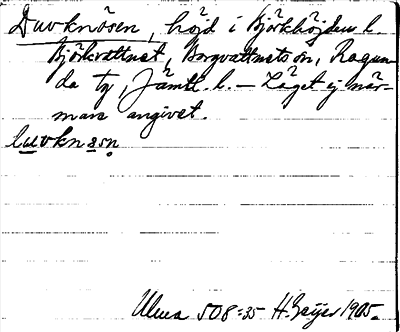 Duvknösen, höjd i Björkhöjden l.
Björkvattnet, Borgvattnets sn, Ragun-
da tg, Jämtl. l. – Läget ej när-
mare angivet.
luvknasn
Ulma 508:35 H. Geijer 1905.